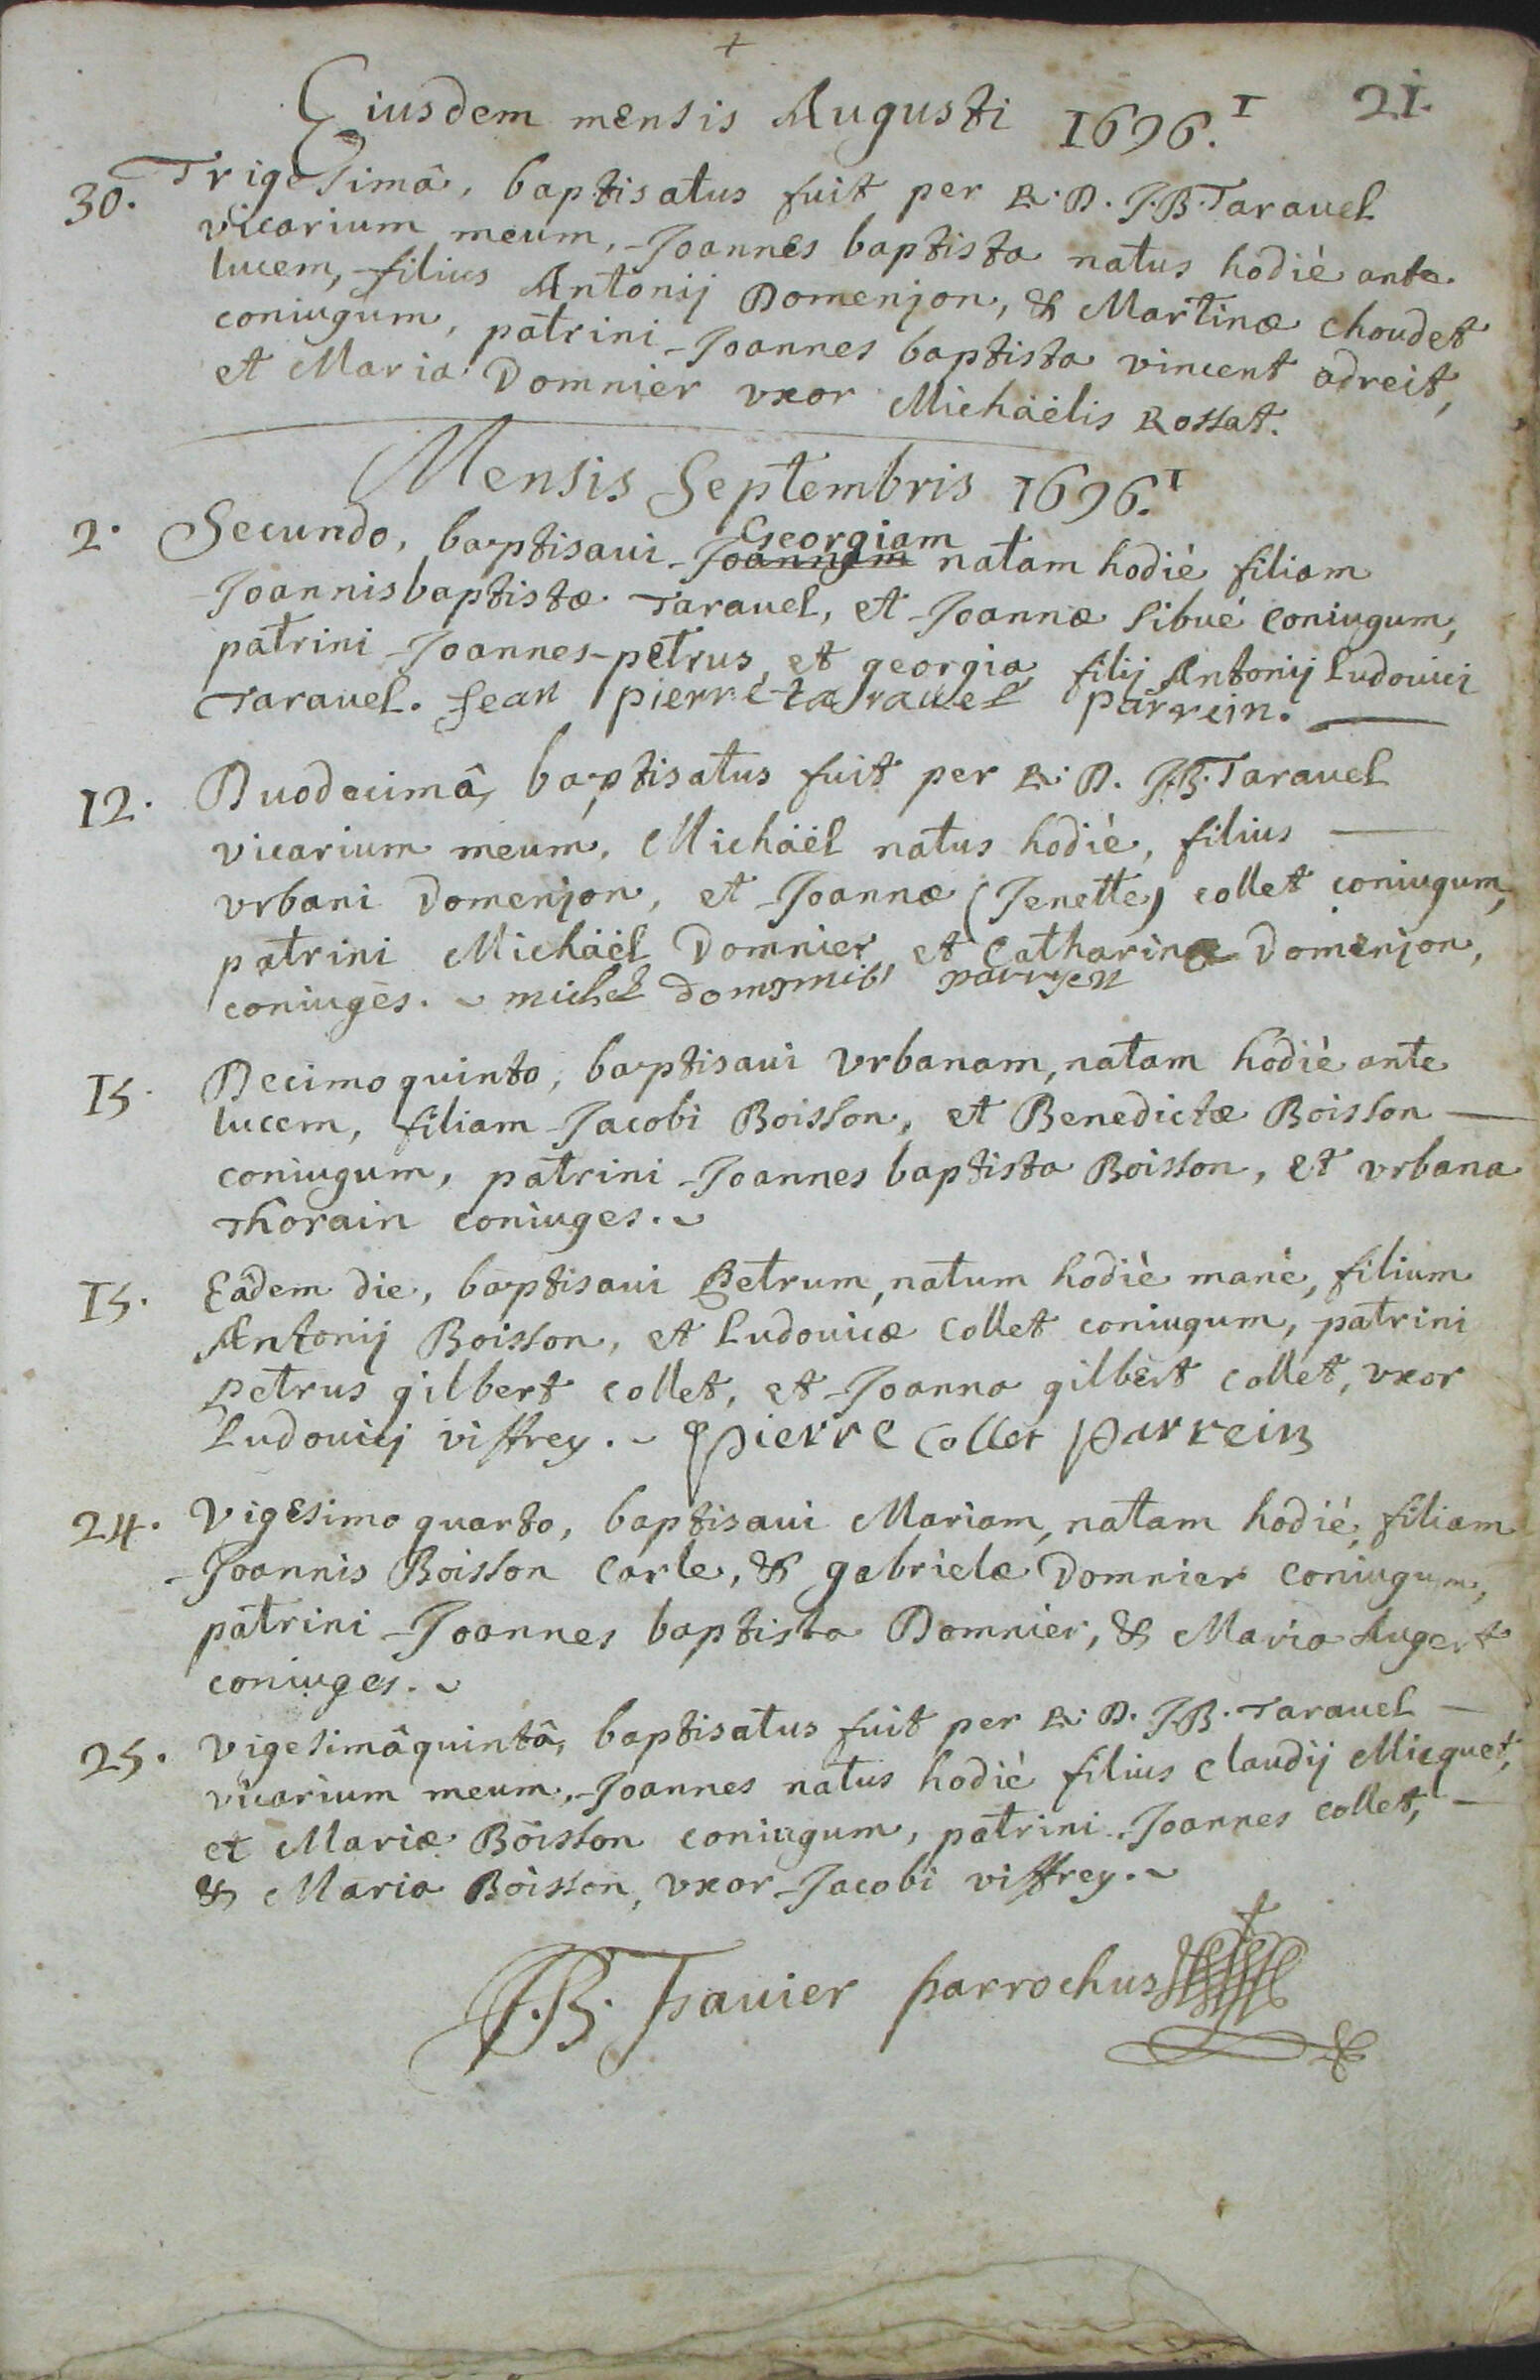 +
Eiusdem mensis Augusti 1696.I 21.
30. Trigesimâ, baptisatus fuit per R. D. J.B. Tarauel
vicarium meum, Joannes baptista natus hodiè ante
lucem, filius Antonij Domenjon, & Martinæ choudet
coniugum, patrini Joannes baptista vincent adreit,
et Maria Domnier vxor Michäelis Rossat.
Mensis Septembris 1696.I
Georgiam
2. Secundo, baptisaui Joannam natam hodiè filiam
Joannisbaptistæ Tarauel, et Joannæ Sibué coniugum,
patrini Joannes-petrus, et georgia filij Antonij Ludouici
Tarauel. Jean pierre tarauel parrein.
12. Duodecimâ, baptisatus fuit per R. D. J.B. Tarauel
vicarium meum, Michäel natus hodiè, filius
vrbani Domenjon, et Joannæ (Jenette) collet coniugum,
patrini Michäel Domnier, et Catharina Domenjon,
coniuges. michel
15. Decimoquinto, baptisaui vrbanam, natam hodiè ante
lucem, filiam Jacobi Boisson, et Benedictæ Boisson
coniugum, patrini Joannes baptista Boisson, et vrbana
Thorain coniuges.
15. Eâdem die, baptisaui Petrum, natum hodiè manè, filium
Antonij Boisson, et Ludouicæ Collet coniugum, patrini
petrus gilbert collet, et Joanna gilbert collet, vxor
Ludouicj viffrey. pierre Collet parrein
24. Vigesimo quarto, baptisaui Mariam, natam hodiè, filiam
Joannis Boisson Carle, & gabrielæ Domnier coniugum,
patrini Joannes baptista Domnier, & Maria Augert
coniuges.
25. Vigesimâquintâ, baptisatus fuit per R. D. J.B. Tarauel
vicarium meum, Joannes natus hodiè filius Claudij Micquet,
et Mariæ Boisson coniugum, patrini Joannes collet,
& Maria Boisson, vxor Jacobi viffrey.
J.B. parrochus